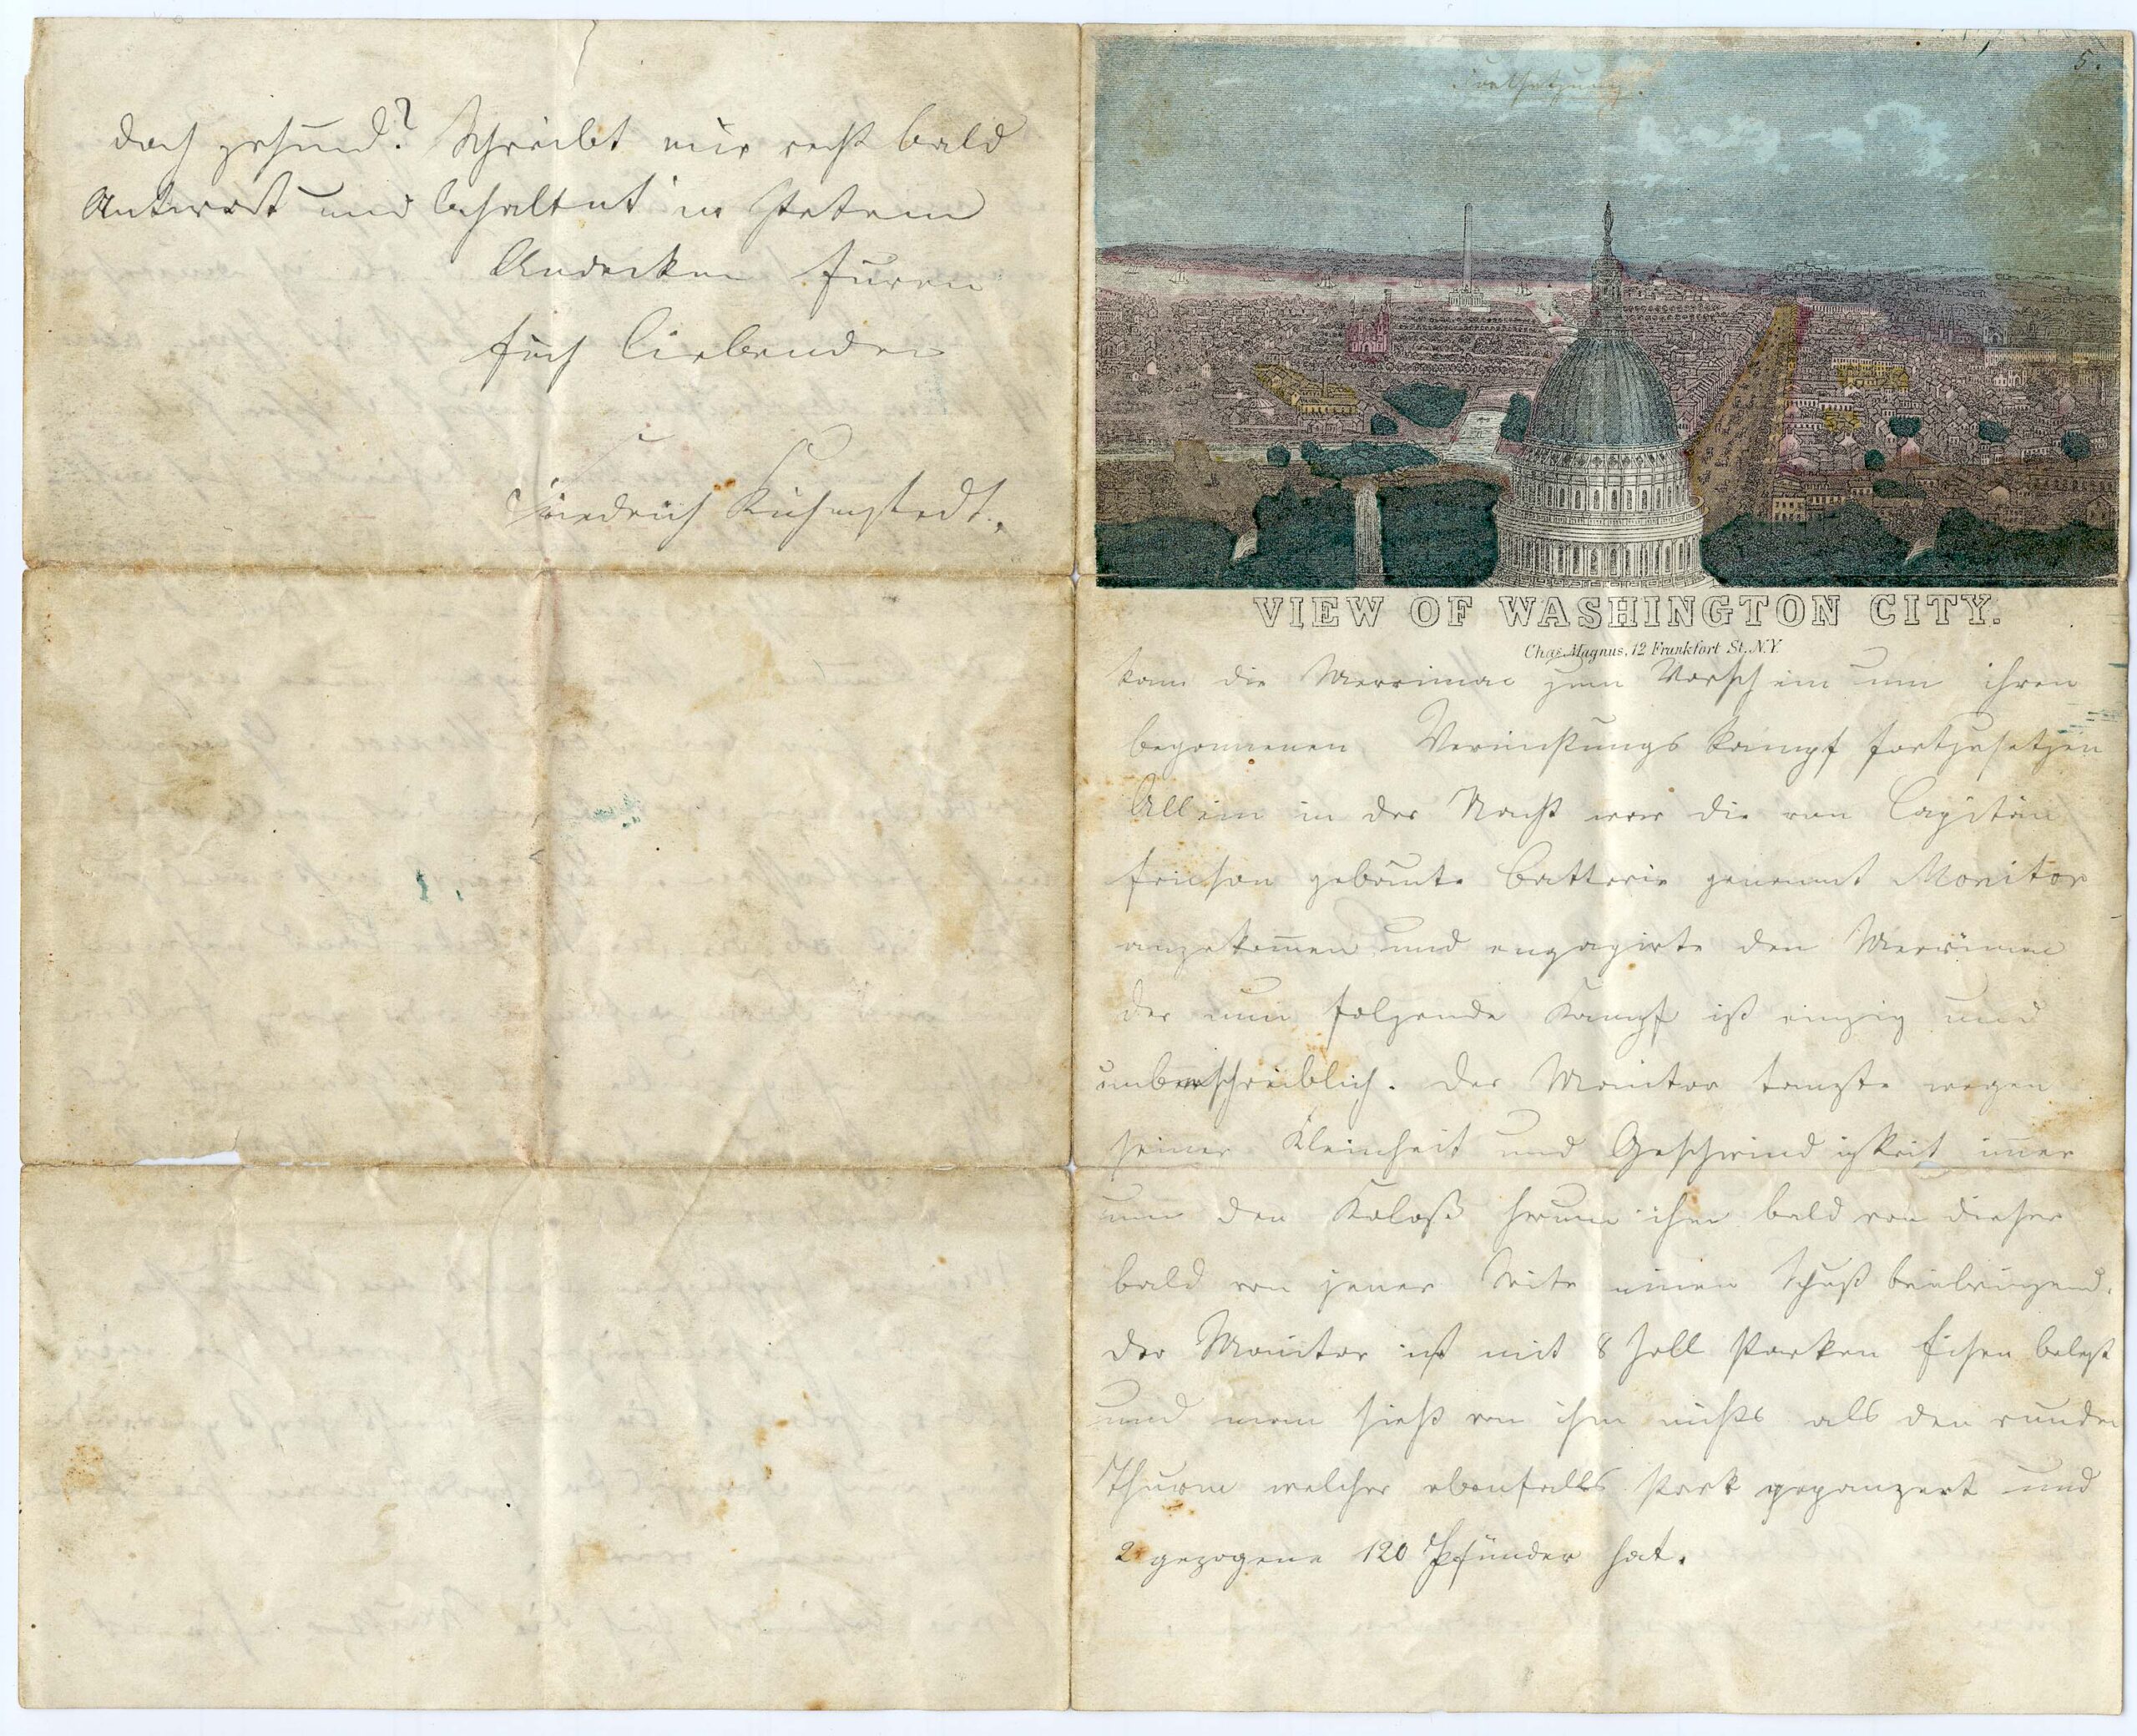 doch gesund? Schreibt mir recht bald
Antwort und behaltet in stetem
Andecken Euren
Euch liebenden
Friedrich Kühmstedt.
5.
Fortsetzung.
VIEW OF WASHINGTON CITY.
Chas. Magnus, 12 Frankfort St. N.Y
kam die Merrimac zum Vorschein um ihren
begonnenen Vernichtungs kampf fortzusetzen
Allein in der Nacht war die von Capitän
Ericson gebaute Batterie genannt Monitor
angekom̄en und engagirte den Merrimac
der nun folgende Kampf ist einzig und
unbeschreiblich. Der Monitor tanzte wegen
seiner Kleinheit und Geschwindigkeit im̄er
um den Koloß herum ihm bald von dieser
bald von jener Seite einen Schuß beibringend.
Der Monitor ist mit 8 Zoll starken Eisen belegt
und man sieht von ihm nichts als den runden
Thurm welcher ebenfalls stark gepanzert und
2 gezogene 120 Pfünder hat.